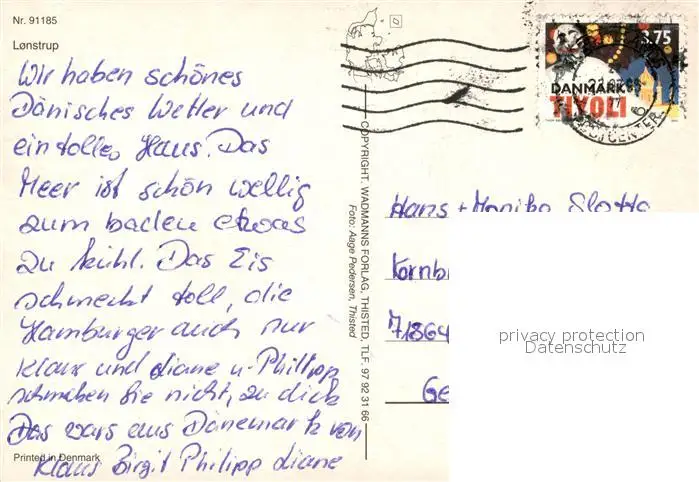 Nr. 91185
Lønstrup
Wir haben schönes
Dänisches Wetter und
ein tolles Haus. Das
Meer ist schön wellig
zum baden etwas
zu kühl. Das Eis
schmeckt toll, die
Hamburger auch nur
Klaus und diane u. Phillipp
schmeken Sie nicht, zu dick
Das wars aus Dänemark von
Klaus Birgit Philipp diane
Printed in Denmark
COPYRIGHT: WADMANNS FORLAG, THISTED, TLF. 97 92 31 66
Foto: Aage Pedersen, Thisted.
3.75
DANMARK
TIVOLI
Hans + Monika
Kornb
71864
Ge
privacy protection
Datenschutz